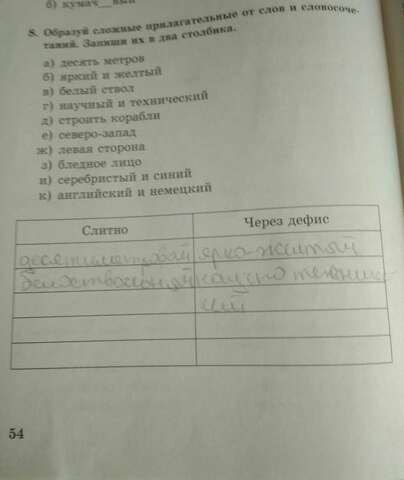 б) кумач__вый
8. Образуй сложные прилагательные от слов и словосоче-
таний. Запиши их в два столбика.
а) десять метров
б) яркий и желтый
в) белый ствол
г) научный и технический
д) строить корабли
е) северо-запад
ж) левая сторона
з) бледное лицо
и) серебристый и синий
к) английский и немецкий
Слитно Через дефис
десятиметровый ярко-желтый
белоствольный научно техничес-
кий
54